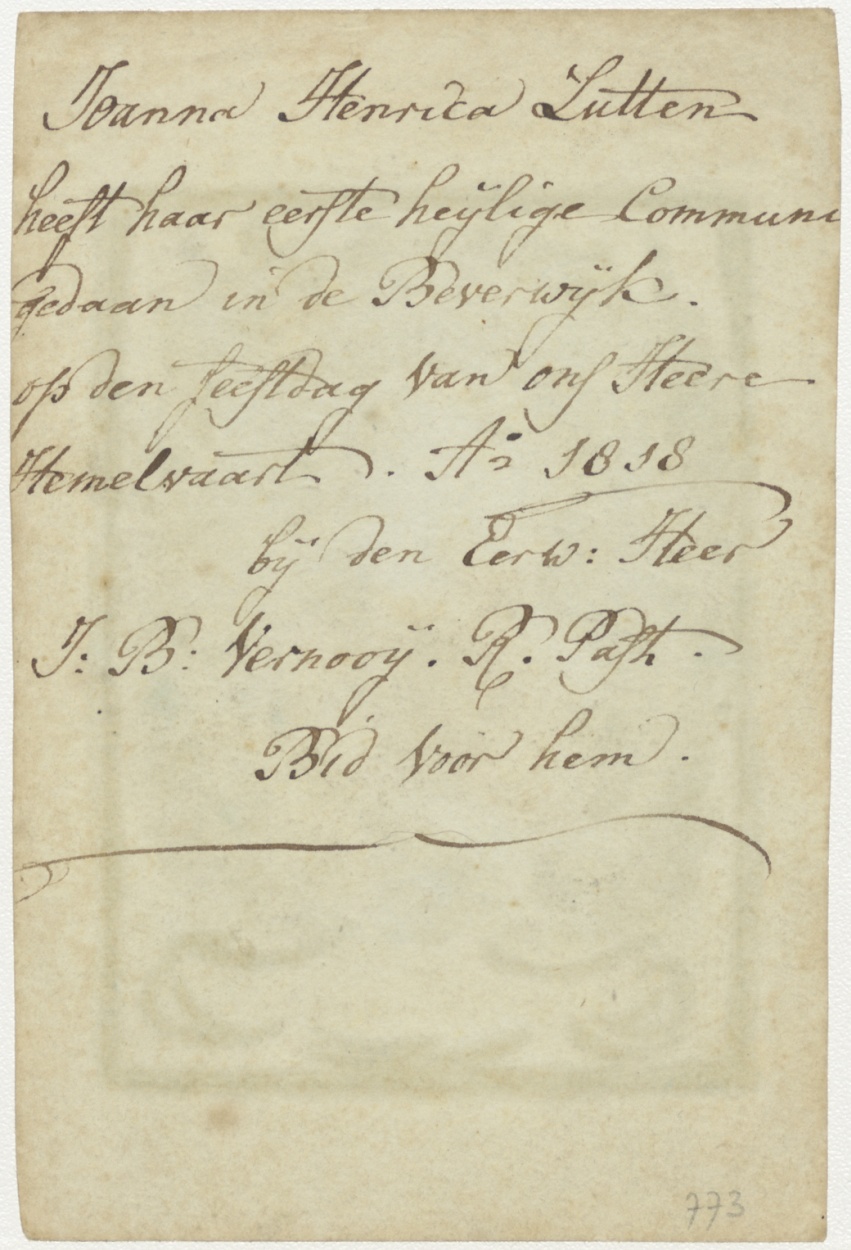 Joanna Henrica Lutten
heeft haar eerste heÿlige Communi
gedaan in de Beverwÿk.
op den feestdag van ons Heere
Hemelvaart. Ao 1818
bÿ den Eerw: Heer
J: B: Vernooÿ. R. Past.
Bid voor hem.
773